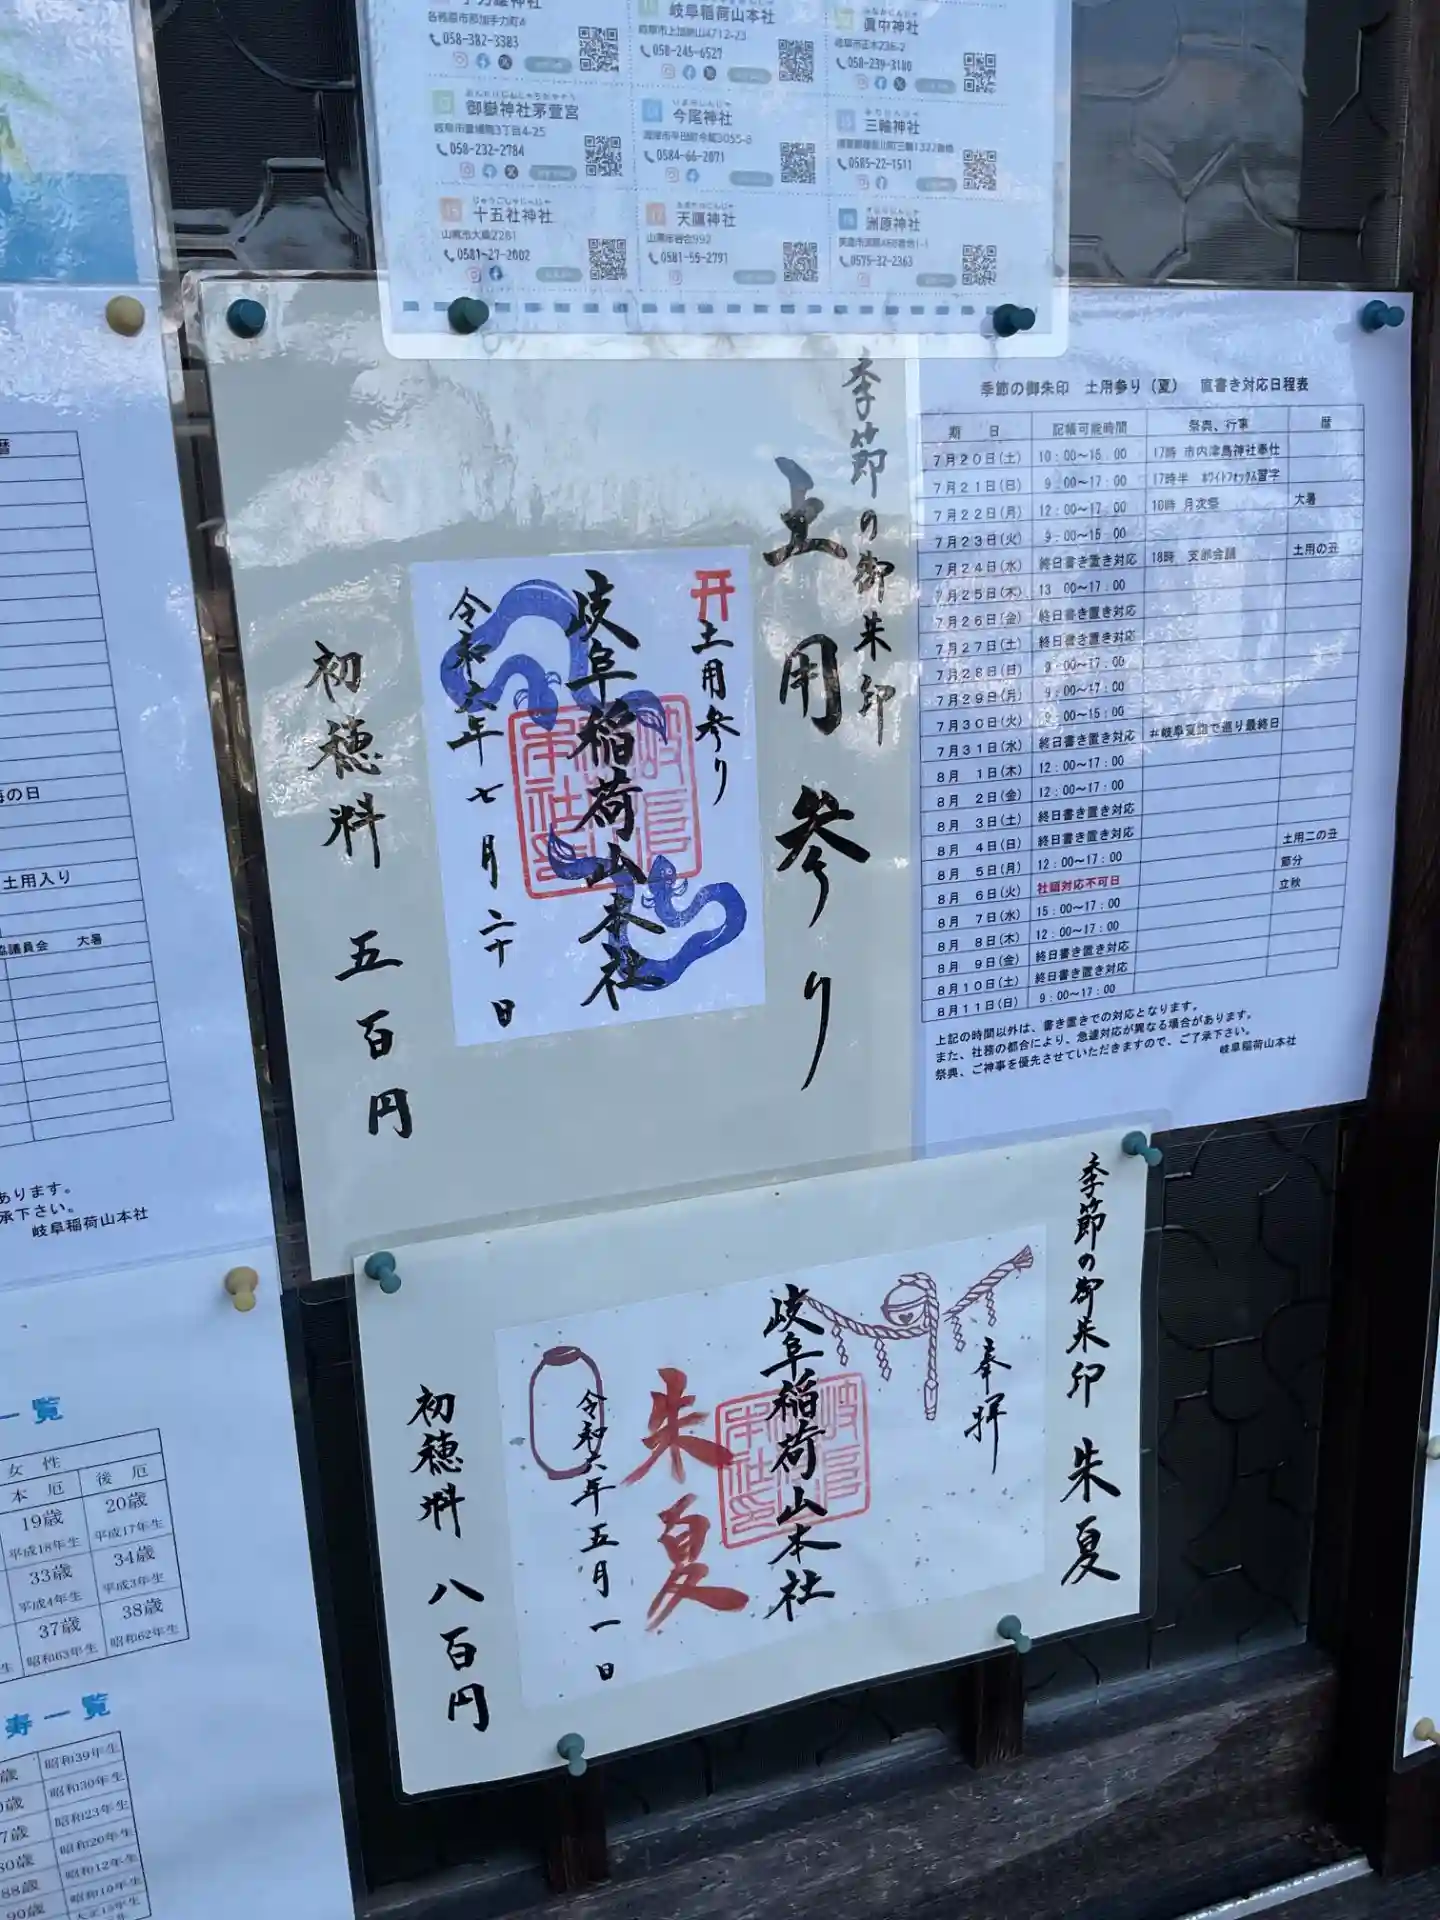 力雄神社
各務原市那加手力町4
058-382-3383
岐阜稲荷山本社
岐阜市上加納山4712-23
058-245-6527
眞中神社
岐阜市正木236-2
058-239-3180
御嶽神社茅萱宮
3丁目4-25
058-232-2784
今尾神社
海津市平田町今尾3055-8
0584-66-2071
三輪神社
0585-22-1511
じゅうごしゃじんじゃ
十五社神社
山県市大桑2261
0581-27-2002
天鷹神社
992
0581-55-2791
洲原神社
0575-32-2363
季節の御朱印
土用参り
土用参り
岐阜稲荷山本社
令和六年七月二十日
初穂料 五百円
季節の御朱印 土用参り(夏) 直書き対応日程表
期 日 記帳可能時間 祭典、行事 暦
7月20日(土) 10:00～15:00 17時 市内津島神社奉仕
7月21日(日) 9:00～17:00 17時半 ホワイトフォックス習字
7月22日(月) 12:00～17:00 10時 月次祭 大暑
7月23日(火) 9:00～15:00
7月24日(水) 終日書き置き対応 18時 支部会議 土用の丑
7月25日(木) 13:00～17:00
7月26日(金) 終日書き置き対応
7月27日(土) 終日書き置き対応
7月28日(日) 9:00～17:00
7月29日(月) 9:00～17:00
7月30日(火) 9:00～15:00
7月31日(水) 終日書き置き対応 #岐阜夏詣で巡り最終日
8月 1日(木) 12:00～17:00
8月 2日(金) 12:00～17:00
8月 3日(土) 終日書き置き対応
8月 4日(日) 終日書き置き対応 土用二の丑
8月 5日(月) 12:00～17:00 節分
8月 6日(火) 社頭対応不可日 立秋
8月 7日(水) 15:00～17:00
8月 8日(木) 12:00～17:00
8月 9日(金) 終日書き置き対応
8月10日(土) 終日書き置き対応
8月11日(日) 9:00～17:00
上記の時間以外は、書き置きでの対応となります。
また、社務の都合により、急遽対応が異なる場合があります。
祭典、ご神事を優先させていただきますので、ご了承下さい。
岐阜稲荷山本社
季節の御朱印 朱夏
奉拝
岐阜稲荷山本社
朱夏
令和六年五月一日
初穂料 八百円
暦
の日
土用入り
協議員会 大暑
あります。
承下さい。
岐阜稲荷山本社
一覧
女性
本厄 後厄
19歳 20歳
平成18年生 平成17年生
33歳 34歳
平成4年生 平成3年生
37歳 38歳
昭和63年生 昭和62年生
寿一覧
昭和39年生
昭和30年生
昭和23年生
昭和20年生
88歳 昭和12年生
90歳 昭和10年生